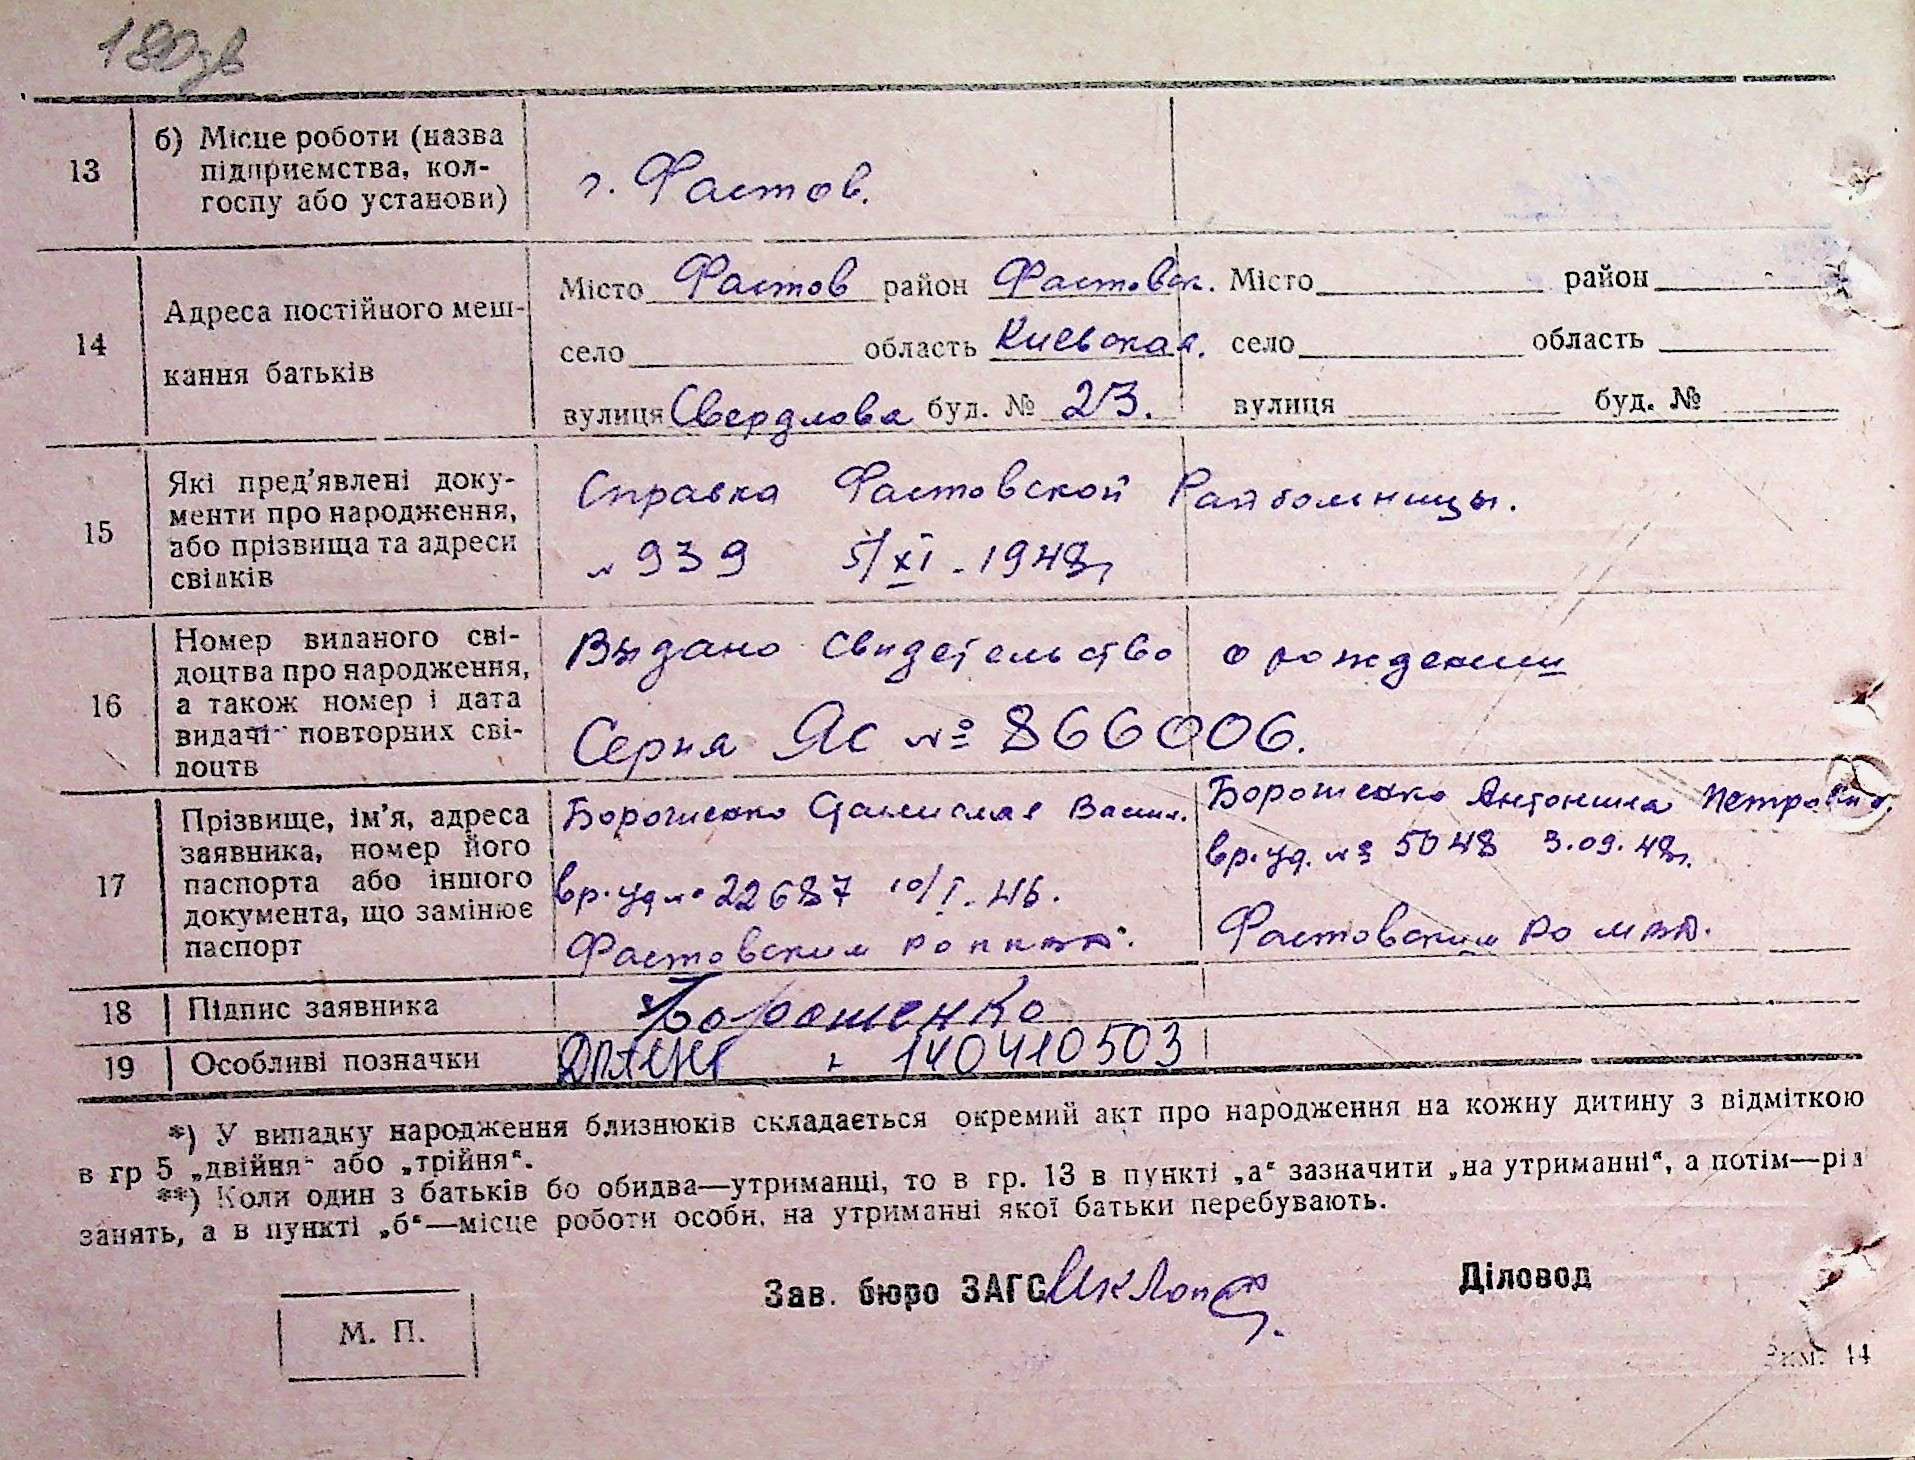 180зв
13
б) Місце роботи (назва
підприємства, кол-
госпу або установи)
г. Фастов.
14
Адреса постійного меш-
кання батьків
Місто Фастов район Фастовск.
село область Киевская.
вулиця Свердлова буд. № 23.
Місто район
село область
вулиця буд. №
15
Які пред’явлені доку-
менти про народження,
або прізвища та адреси
свідків
Справка Фастовской Райбольницы.
№ 939 5/XI - 1948г
16
Номер виданого сві-
доцтва про народження,
а також номер і дата
видачі повторних сві-
доцтв
Выдано свидетельство о рождении
Серия Яс № 866006.
17
Прізвище, ім’я, адреса
заявника, номер його
паспорта або іншого
документа, що замінює
паспорт
Борошенко Станислав Васил.
вр. уд № 22687 10/I. 46.
Фастовским
Борошенко Антонина Петровна.
вр. уд. № 5048 3.09.48г.
Фастовским РО МВД.
18
Підпис заявника
Борошенко
19
Особливі позначки
140410503
*) У випадку народження близнюків складається окремий акт про народження на кожну дитину з відміткою
в гр 5 „двійня“ або „трійня“.
**) Коли один з батьків бо обидва—утриманці, то в гр. 13 в пункті „а“ зазначити „на утриманні“, а потім—рід
занять, а в пункті „б“—місце роботи особи, на утриманні якої батьки перебувають.
Зав. бюро ЗАГС
Діловод
М. П.
44